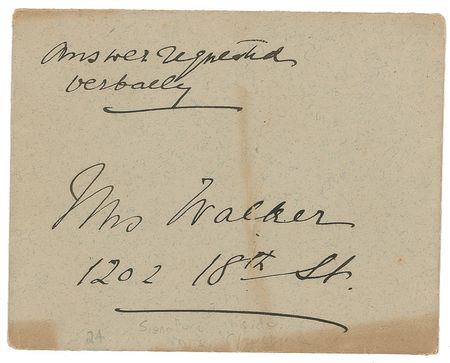 Answer requested
verbally
Mrs Walker
1202 18th St.
24
Signature inside